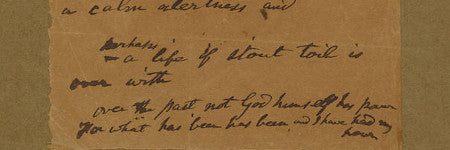 a calm alertness and
perhaps
– a life of stout toil is
over with
over the past not God himself has power
For what has been has been and I have had my
hour